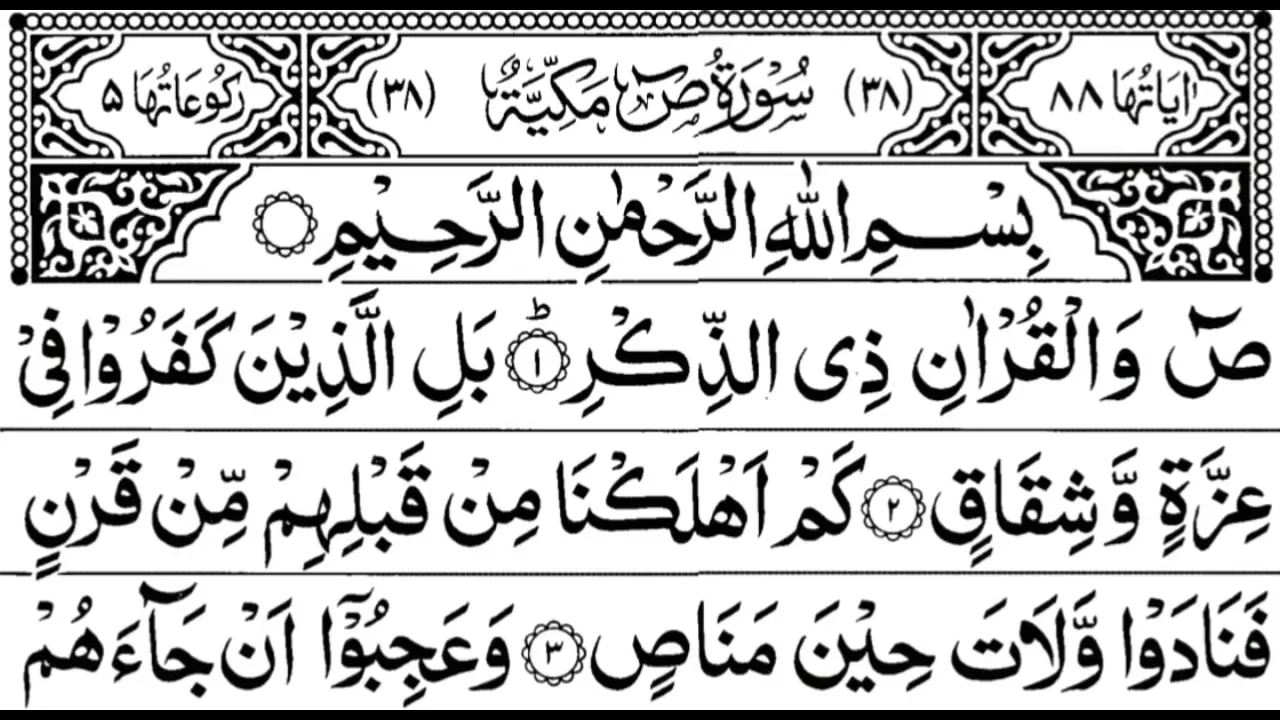 اٰيَاتُهَا ٨٨ (٣٨) سُوْرَةُ صٓ مَكِّيَّةٌ (٣٨) رَكُوْعَاتُهَا ۵
بِسْمِ اللّٰهِ الرَّحْمٰنِ الرَّحِيْمِ
صٓ وَالْقُرْاٰنِ ذِى الذِّكْرِ ؕ۱ بَلِ الَّذِيْنَ كَفَرُوْا فِىْ
عِزَّةٍ وَّشِقَاقٍ ۲ كَمْ اَهْلَكْنَا مِنْ قَبْلِهِمْ مِّنْ قَرْنٍ
فَنَادَوْا وَّلَاتَ حِيْنَ مَنَاصٍ ۳ وَعَجِبُوْۤا اَنْ جَآءَهُمْ